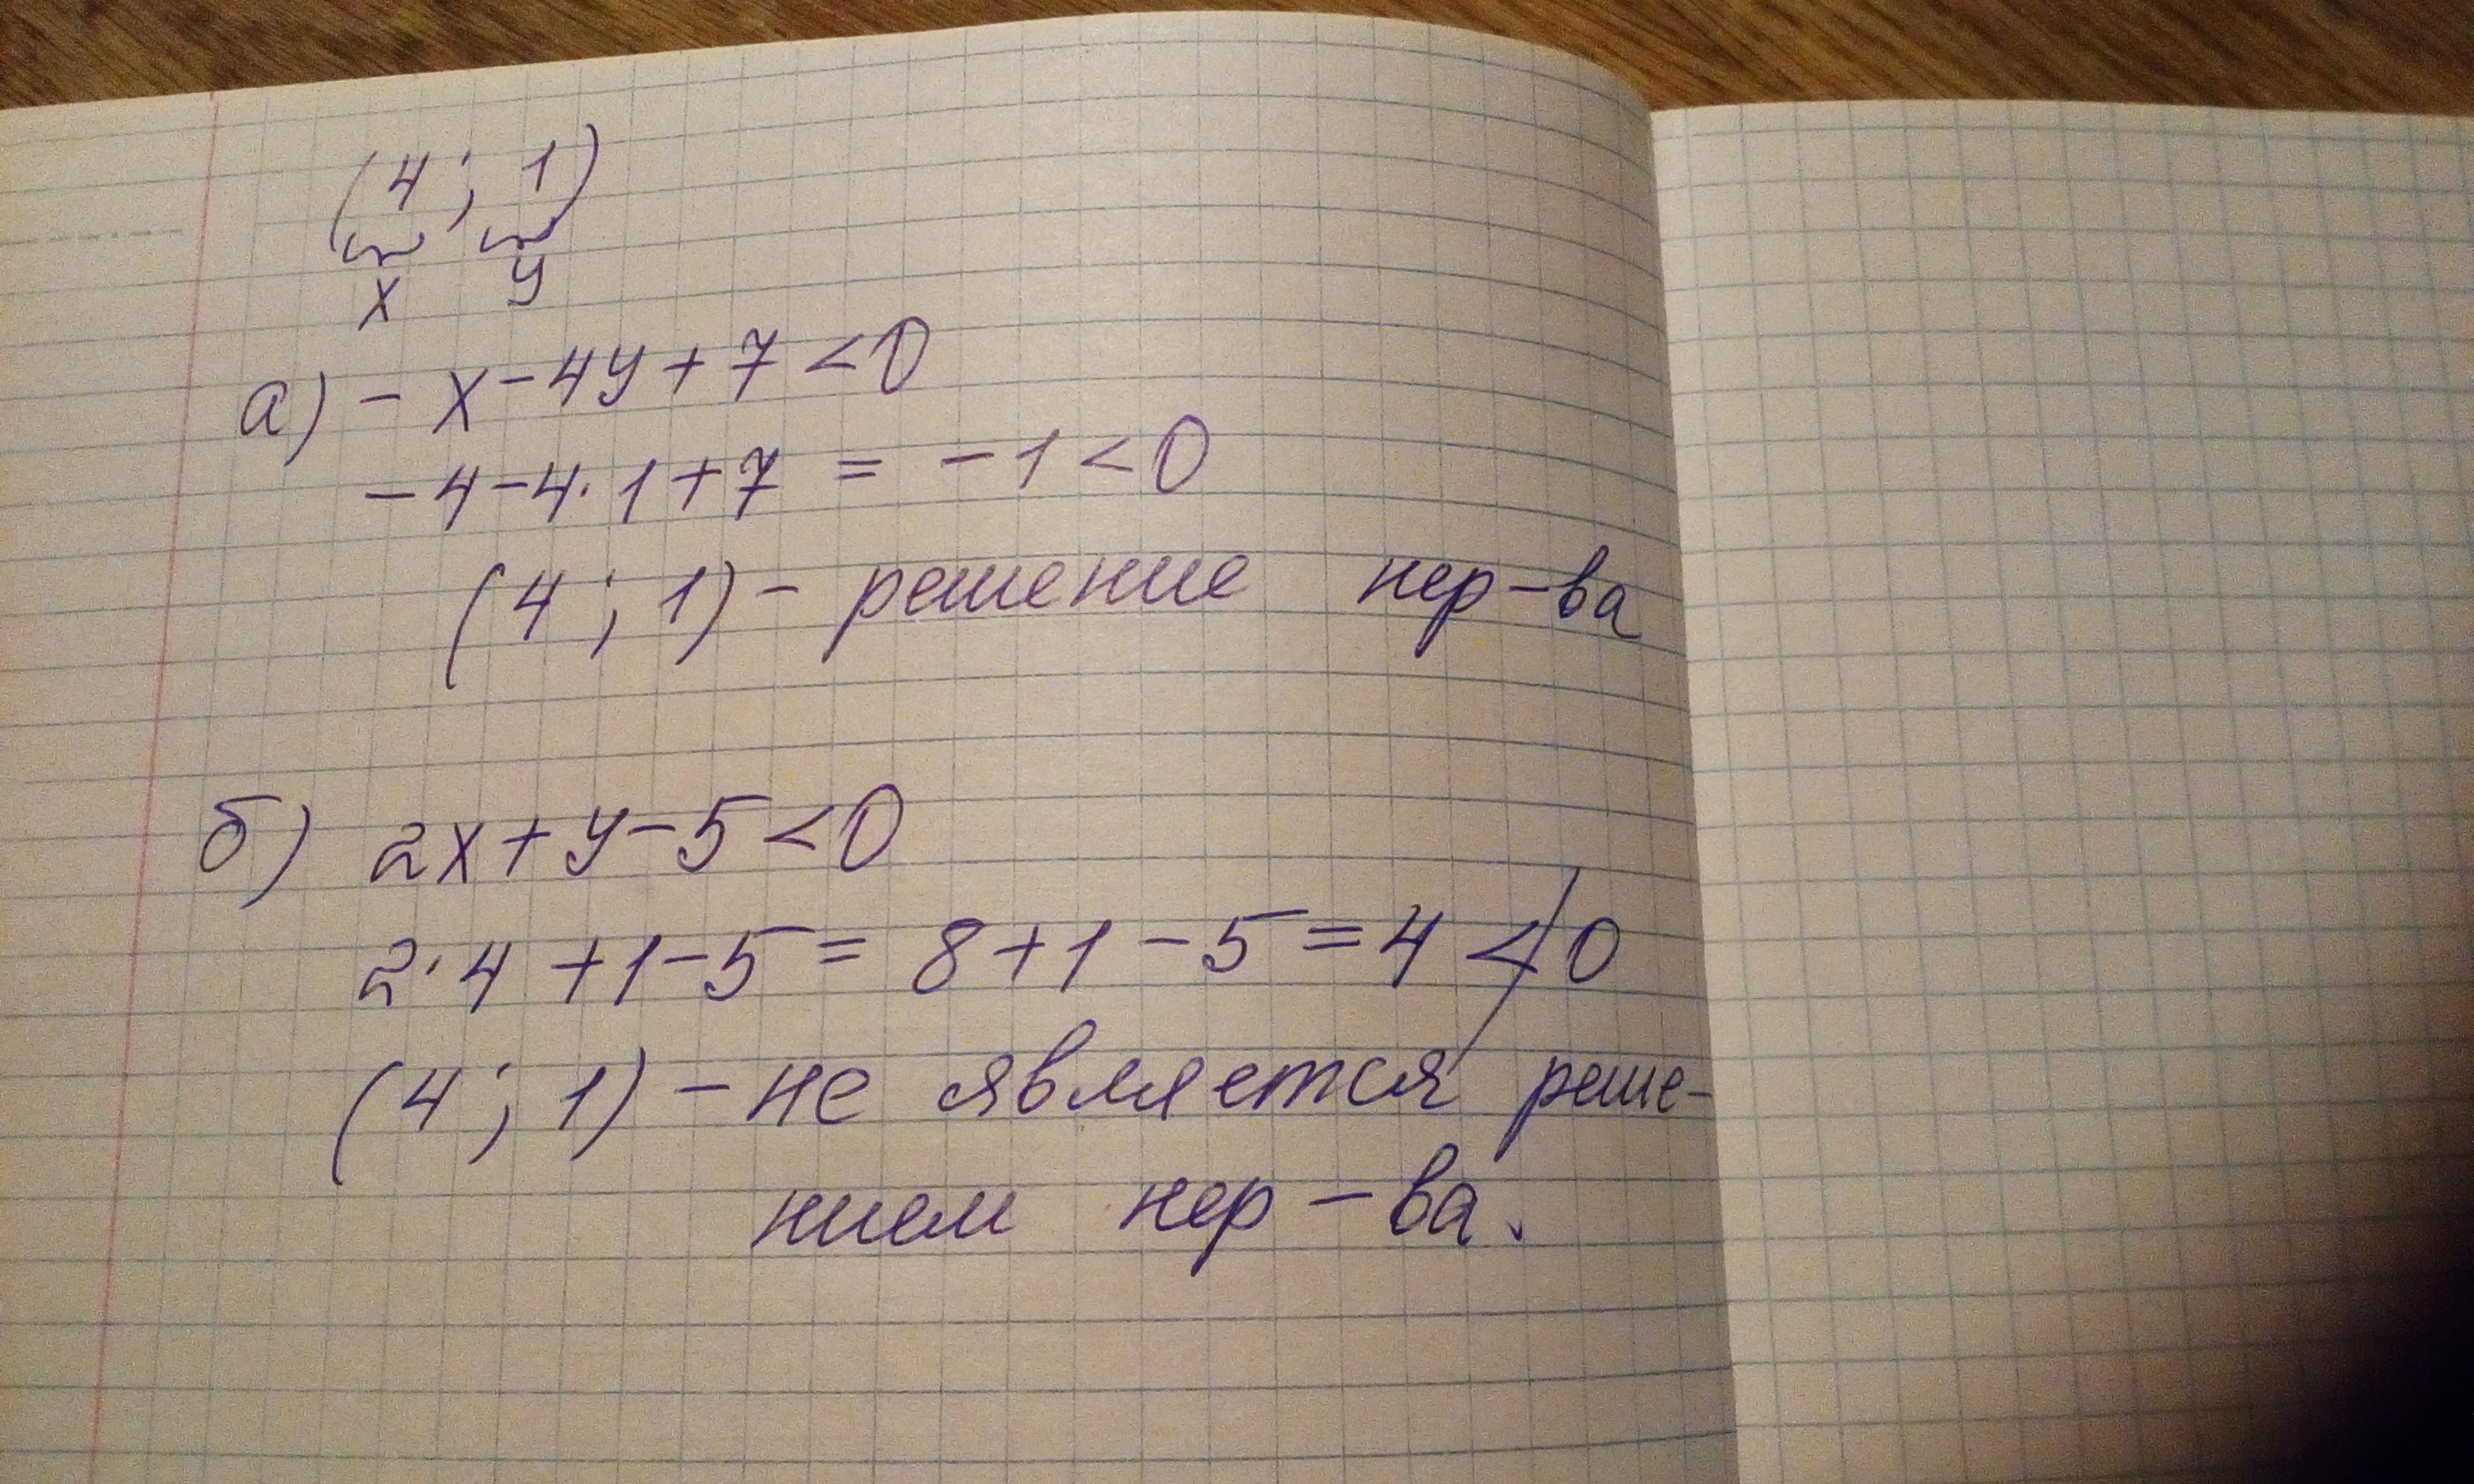 (4 ; 1)
x y
а) - x - 4y + 7 < 0
- 4 - 4 · 1 + 7 = - 1 < 0
(4 ; 1) - решение нер-ва
б) 2x + y - 5 < 0
2 · 4 + 1 - 5 = 8 + 1 - 5 = 4 ≮ 0
(4 ; 1) - не является реше-
нием нер-ва.